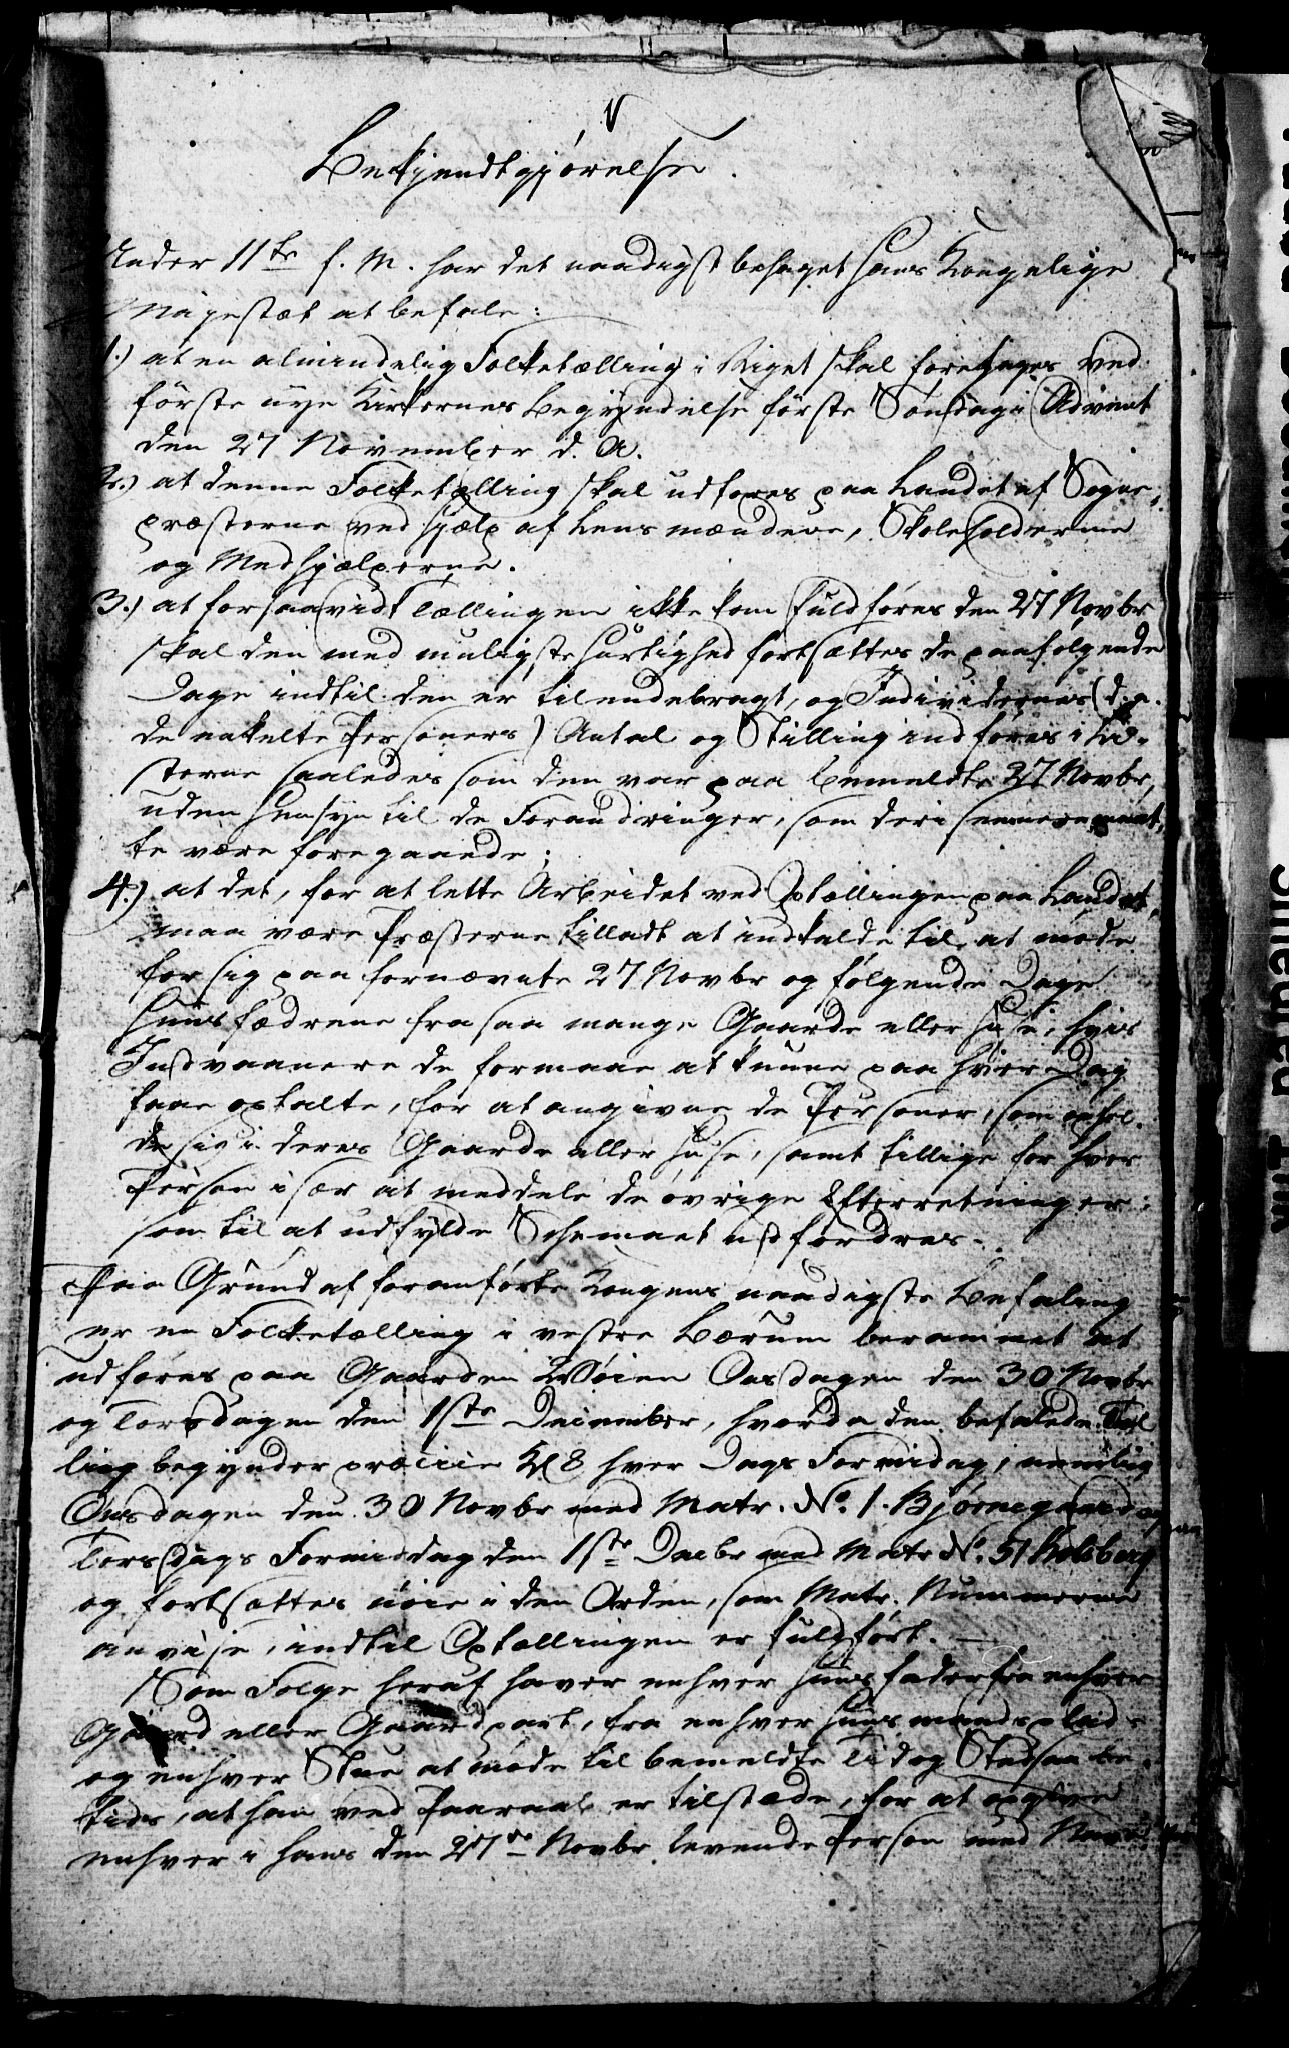 Bekjendtgjørelse.
Under 11te f. M. har det naadigst behaget Hans Kongelige
Majestæt at befale:
1.) at en almindelig Folketælling i Riget skal foretages ved
første nye Kirkeaars Begyndelse første Søndag i Advent
den 27 November d. A.
2.) at denne Folketælling skal udføres paa Landet af Sogne-
præsterne ved Hjælp af Lensmændene, Skoleholderne
og Medhjælperne.
3.) at forsaavidt Tællingen ikke kan fuldføres den 27 Novbr
skal den med muligste Hurtighed fortsættes de paafølgende
Dage indtil den er tilendebragt, og Individernes (d. e.
de enkelte Personers) Antal og Stilling indføres i Li-
sterne saaledes som den var paa bemeldte 27 Novbr,
uden Hensyn til de Forandringer, som deri senere maat-
te være foregaaede;
4.) at det, for at lette Arbeidet ved Optællingen paa Landet,
maa være Præsterne tilladt at indkalde til at møde
for sig paa fornævnte 27 Novbr og følgende Dage
Huusfædrene fra saa mange Gaarde eller Huse, hvis
Indvaanere de formaae at kunne paa hver Dag
faae optalte, for at angivne de Personer, som ophol-
de sig i deres Gaarde eller Huse, samt tillige for hver
Person især at meddele de øvrige Efterretninger
som til at udfylde Schemaet udfordres.
Paa Grund af foranførte Kongens naadigste Befaling
er en Folketælling i vestre Bærum berammet at
udføres paa Gaarden Wøien Onsdagen den 30 Novbr
og Torsdagen den 1ste December, hvorda den befalede Tæl
ling begynder præcise Kl 8 hver Dags Formidag, nemlig
Onsdagen den 30 Novbr med Matr. No. 1. Bjørnegaard og
Torsdags Formiddag den 1ste Decbr med Matr No. 51 Kolsberg
og fortsættes nøie i den Orden, som Matr. Nummerne
anvise, indtil Optællingen er fuldført. —
Som Følge heraf haver enhver Huusfader fra enhver
Gaard eller Gaardpart, fra enhver Huusmandsplads
og enhver Stue at møde til bemeldte Tid og Sted saa be-
tids, at han ved Paaraab er tilstæde, for at opgive
enhver i Hans den 27de Novbr levende Person med Navn